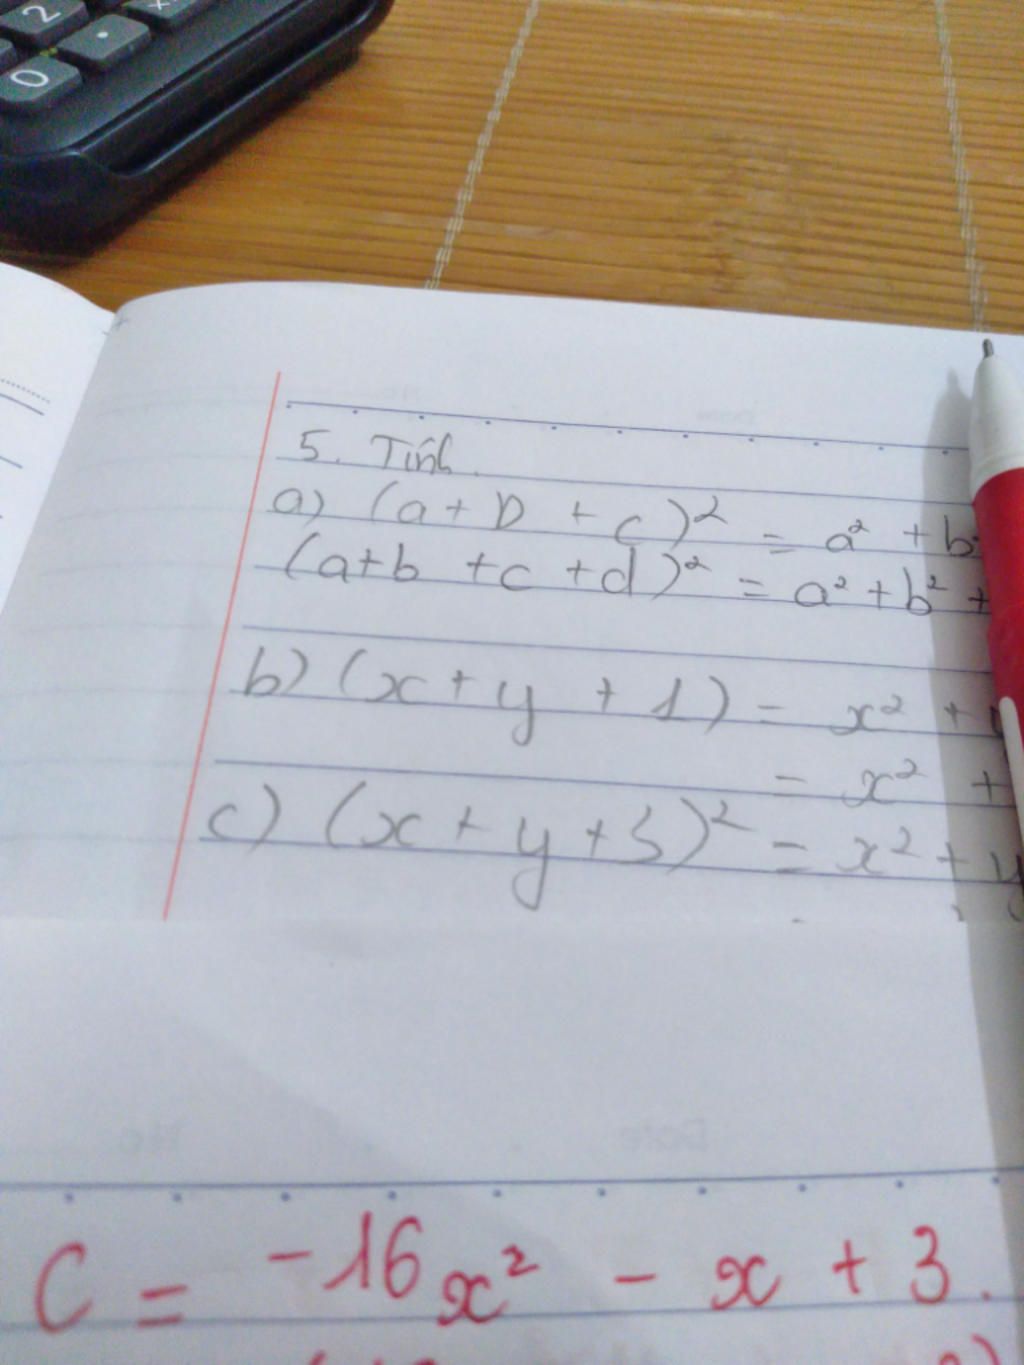 2
0
5. Tính.
a) (a + b + c)² = a² + b²
(a+b +c +d)² = a² + b² +
b) (x + y + 1) = x² +
= x² +
c) (x + y + 3)² = x² + y
C = -16x² - x + 3.